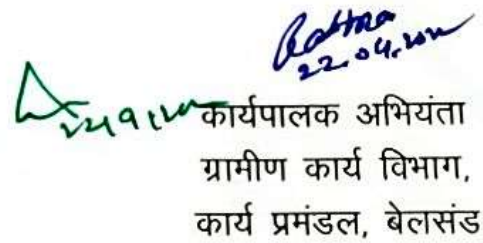 22.04.2022
कार्यपालक अभियंता
ग्रामीण कार्य विभाग,
कार्य प्रमंडल, बेलसंड